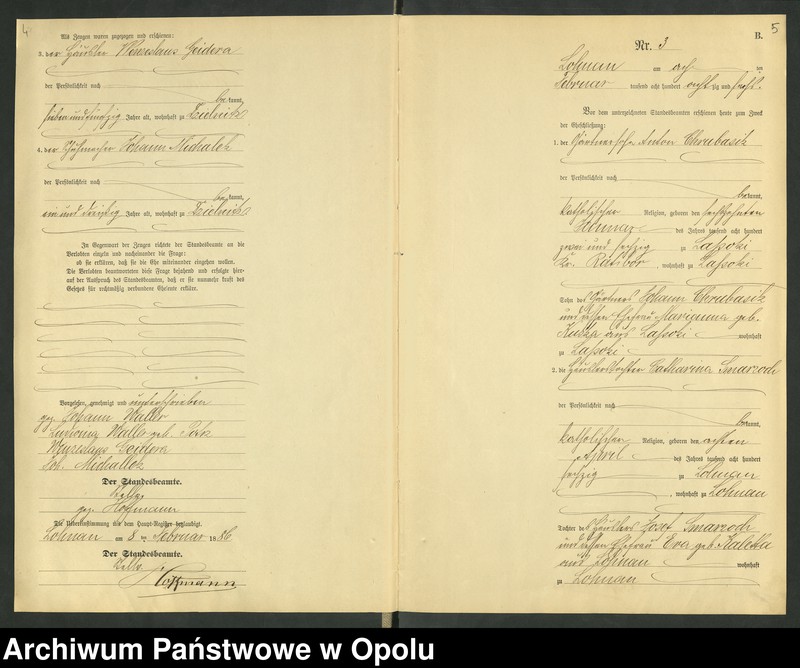 4
Als Zeugen waren zugezogen und erschienen:
3. der Häusler Wenzeslaus Geidera
der Persönlichkeit nach
bekannt,
sieben und fünfzig Jahre alt, wohnhaft zu
4. der Schuhmacher Johann Michalek
der Persönlichkeit nach
bekannt,
ein und dreißig Jahre alt, wohnhaft zu
In Gegenwart der Zeugen richtete der Standesbeamte an die
Verlobten einzeln und nacheinander die Frage:
ob sie erklären, daß sie die Ehe miteinander eingehen wollen.
Die Verlobten beantworteten diese Frage bejahend und erfolgte hier-
auf der Ausspruch des Standesbeamten, daß er sie nunmehr kraft des
Gesetzes für rechtmäßig verbundene Eheleute erkläre.
Vorgelesen, genehmigt und unterschrieben
gez. Johann Waller
Waller geb.
Wenzeslaus Geidera
Joh. Michallek
Der Standesbeamte.
gez. Hoffmann
Die Uebereinstimmung mit dem Haupt-Register beglaubigt.
Lohnau am 8 ten Februar 1886
Der Standesbeamte.
Hoffmann
5
B.
Nr. 3
Lohnau am acht ten
Februar tausend acht hundert achtzig und sechs.
Vor dem unterzeichneten Standesbeamten erschienen heute zum Zweck
der Eheschließung:
1. der Gärtnersohn Anton Chrubasik
der Persönlichkeit nach
bekannt,
katholischer Religion, geboren den sechszehnten
Februar des Jahres tausend acht hundert
zwei und sechzig zu Lassoki
Kr. Ratibor, wohnhaft zu Lassoki
Sohn des Gärtners Johann Chrubasik
und dessen Ehefrau Marianna geb.
aus Lassoki wohnhaft
zu Lassoki
2. die Häuslertochter Catharina Smarzoch
der Persönlichkeit nach
bekannt,
katholischer Religion, geboren den achten
April des Jahres tausend acht hundert
sechzig zu Lohnau
, wohnhaft zu Lohnau
Tochter des Häuslers Josef Smarzoch
und dessen Ehefrau Eva geb. Kaletka
aus Lohnau wohnhaft
zu Lohnau
Archiwum Państwowe w Opolu